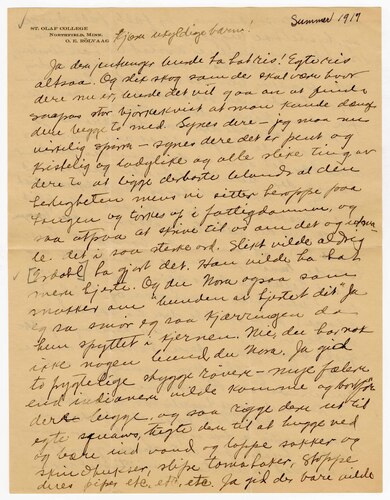 ST. OLAF COLLEGE
NORTHFIELD, MINN.
O. E. RÖLVAAG
Summer 1917
Kjære uskyldige barn!
Ja den skulde ha hat ris! Egte ris
altsaa. Og det skog som de skal være hvor
dere nu er, burde det vil gaa an at finde
saapas stor bjørkekvist at man kunde
dere begge to med. Synes dere – jeg maa nu
virkelig spørre – synes dere det er pent og
kristelig og ladylike og alle slike ting av
dere to at ligge derborte i al den
herligheten mens vi sitter heroppe paa
og tørkes op i fattigdommen, og
saa atpaa at skrive til os om det og
le. det i saa sterke ord. Slikt vilde aldrig
[Grdahl] ha gjort det. Han vilde ha hat
mere hjerte. Og du Nora ogsaa som
om "bunden av hjertet dit" Ja
eg sa smør eg saa kjærringen da
hun spyttet i kjernen. Nei, du har nok
ikke nogen bund, du Nora. Ja gid
to frygtelige skygge røvere – mye fælere
end indianere vilde komme og
dere begge, og saa rigge dere ut til
egte squaws, dere til at hugge ved
og bære ind vand og lappe sokker og
skind, slipe tomahaker, stoppe
deres pipes etc, etc, etc. Ja gid der bare vilde